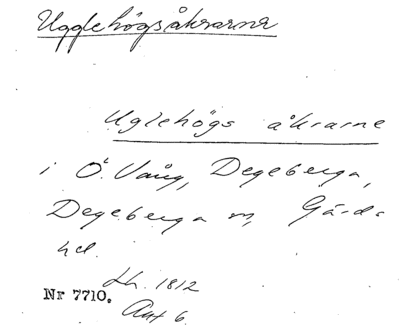 Ugglehögsåkrarna
Uglehögs åkrarne
i Ö. Vång, Degeberga,
Degeberga sn, Gärds
hd.
Lh. 1812
Nr 7710.
Akt 6.